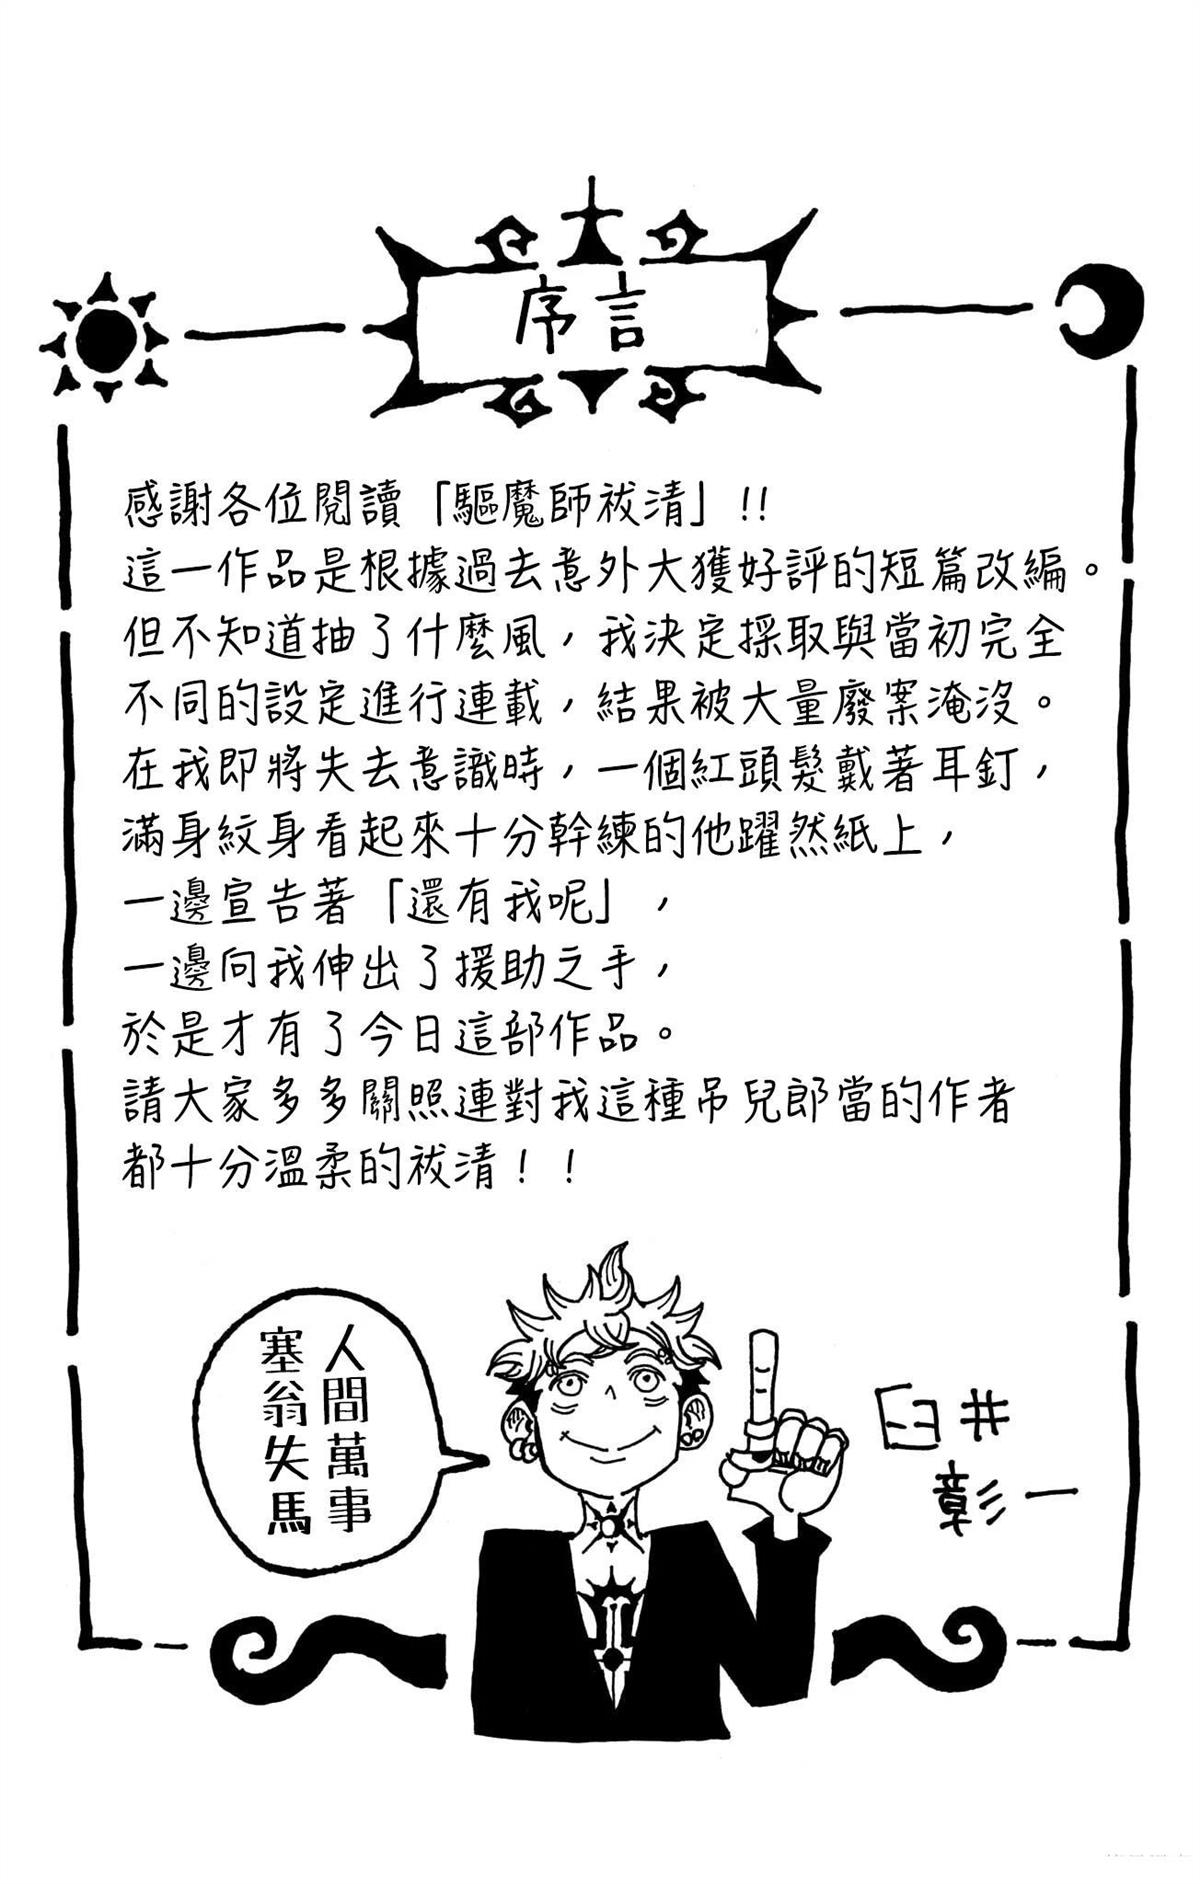 序言
感謝各位閱讀「驅魔師祓清」!!
這一作品是根據過去意外大獲好評的短篇改編。
但不知道抽了什麼風，我決定採取與當初完全
不同的設定進行連載，結果被大量廢案淹沒。
在我即將失去意識時，一個紅頭髮戴著耳釘，
滿身紋身看起來十分幹練的他躍然紙上，
一邊宣告著「還有我呢」，
一邊向我伸出了援助之手，
於是才有了今日這部作品。
請大家多多關照連對我這種吊兒郎當的作者
都十分溫柔的祓清！！
人間萬事
塞翁失馬
臼井
彰一